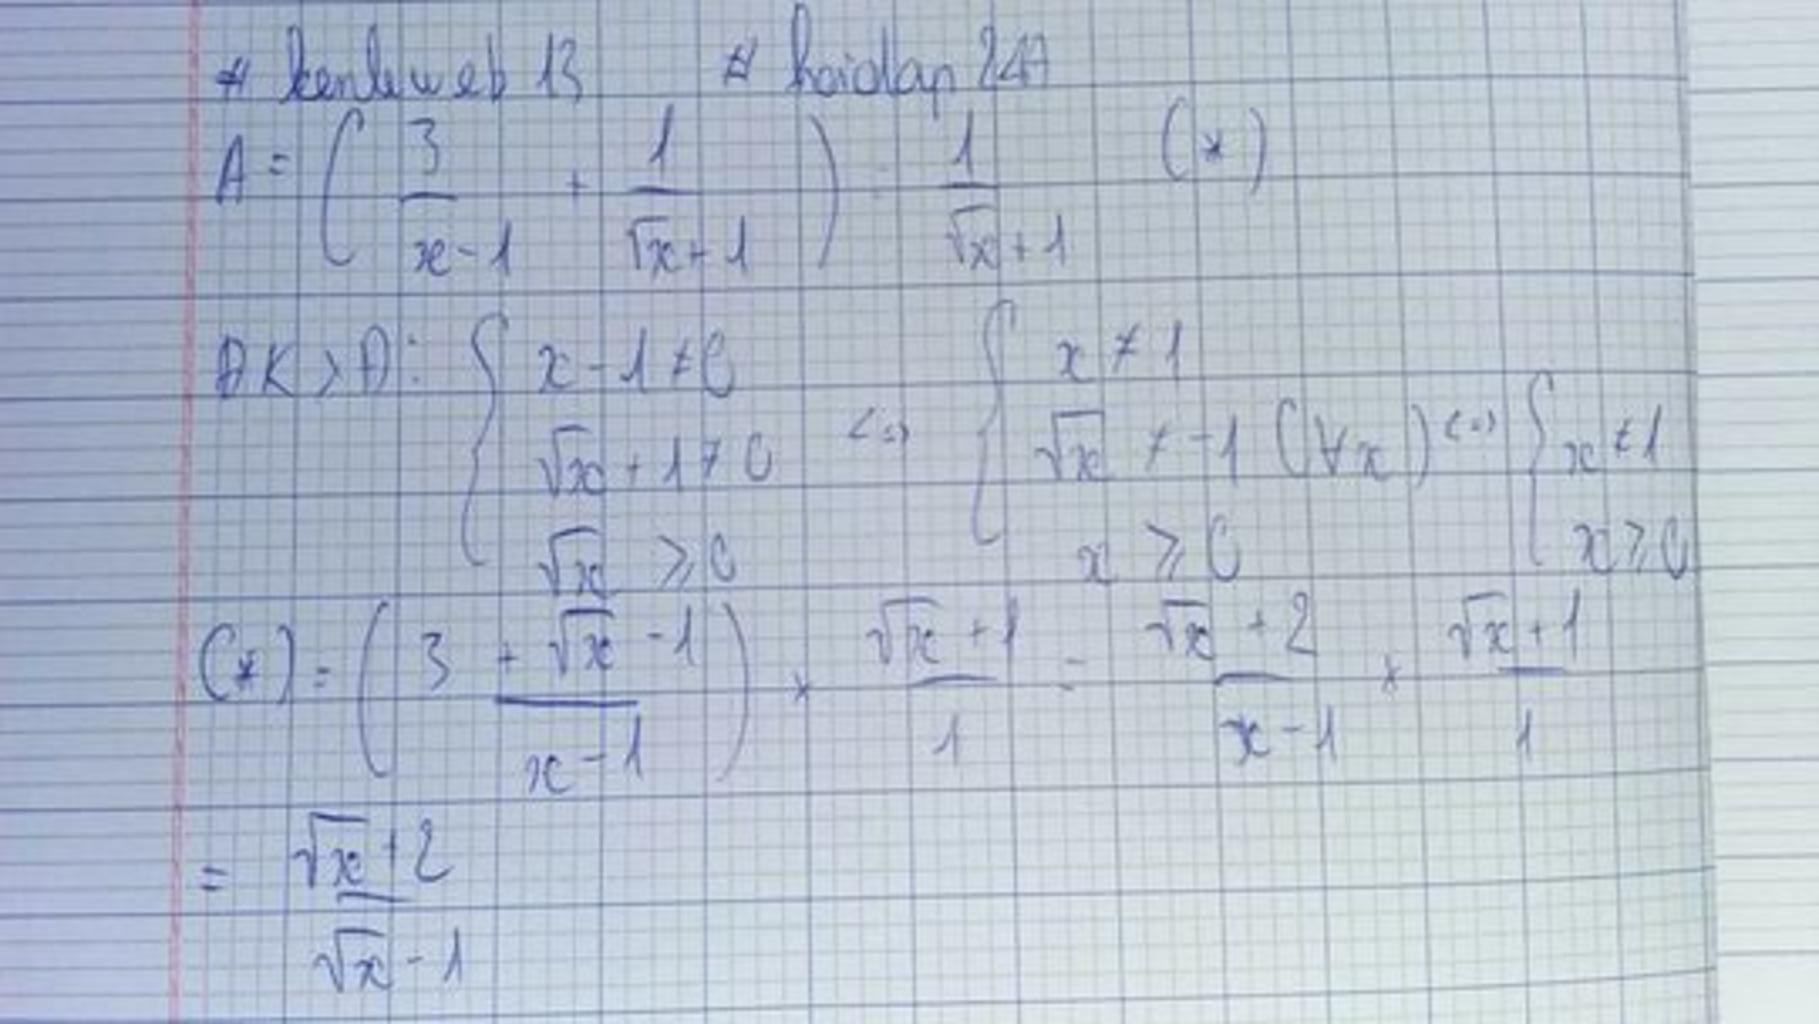 # kenleweb 13 # hoidap 247
A = ( 3/(x-1) + 1/(√x+1) ) : 1/(√x+1) (*)
ĐKXĐ: { x-1 ≠ 0 ; √x+1 ≠ 0 ; √x ≥ 0 <=> { x ≠ 1 ; √x ≠ -1 (∀x) ; x ≥ 0 <=> { x ≠ 1 ; x ≥ 0
(*) = ( (3 + √x - 1)/(x-1) ) × (√x+1)/1 = (√x+2)/(x-1) × (√x+1)/1
= (√x+2)/(√x-1)